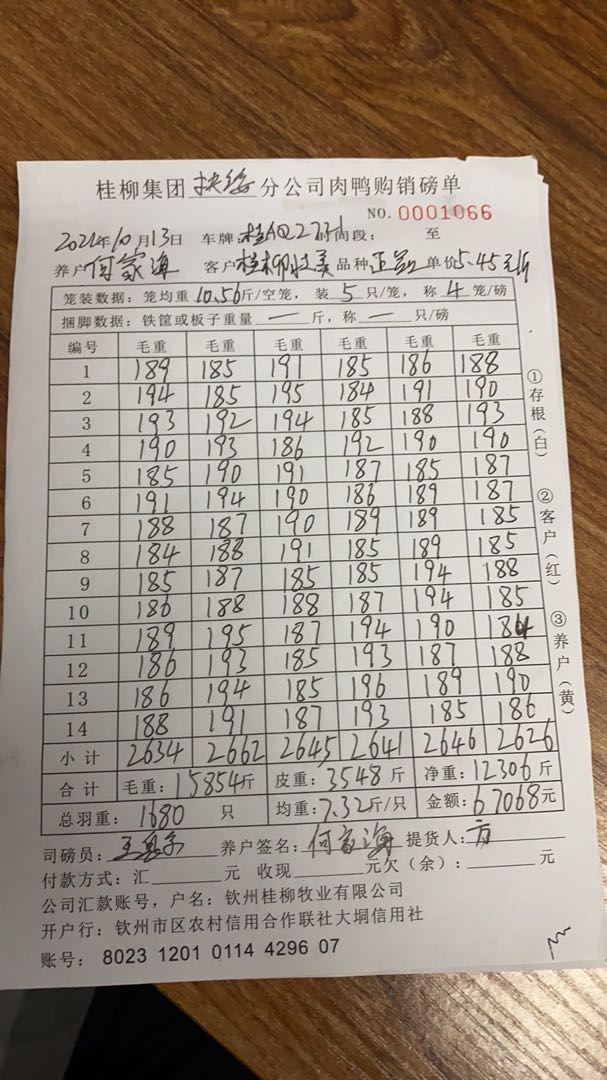 桂柳集团 扶绥 分公司肉鸭购销磅单
NO. 0001066
2021年10月13日 车牌: 时间段: 至
养户 何家海 客户 桂柳牧美 品种 单价 5.45元/斤
笼装数据: 笼均重 10.56 斤/空笼, 装 5 只/笼, 称 4 笼/磅
捆脚数据: 铁筐或板子重量 — 斤, 称 — 只/磅
编号 毛重 毛重 毛重 毛重 毛重 毛重
1 189 185 191 185 186 188
2 194 185 195 184 191 190
3 193 192 194 185 188 193
4 190 193 186 192 190 190
5 185 190 191 187 185 187
6 191 194 190 186 189 187
7 188 187 190 189 189 185
8 184 188 191 185 189 185
9 185 187 185 185 194 188
10 186 188 188 187 194 185
11 189 195 187 194 190 184
12 186 193 185 193 187 188
13 186 194 185 196 189 190
14 188 191 187 193 185 186
小计 2634 2662 2645 2641 2646 2626
合计 毛重: 15854斤 皮重: 3548 斤 净重: 12306 斤
总羽重: 1680 只 均重: 7.32斤/只 金额: 67068元
司磅员: 养户签名: 何家海 提货人: 方
付款方式: 汇 元 收现 元欠(余): 元
公司汇款账号, 户名: 钦州桂柳牧业有限公司
开户行: 钦州市区农村信用合作联社大垌信用社
账号: 8023 1201 0114 4296 07
①存根(白)
②客户(红)
③养户(黄)